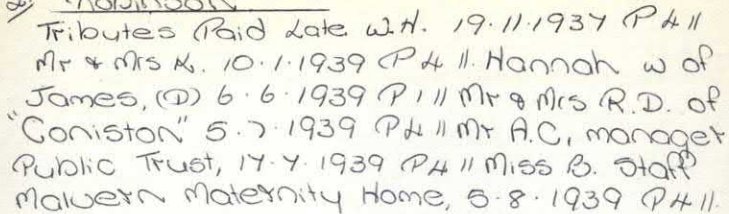 ROBINSON
Tributes Paid Late W.H. 19.11.1937 P4 //
Mr & Mrs K. 10.1.1939 P4 //. Hannah w of
James, (D) 6.6.1939 P1 // Mr & Mrs R.D. of
"Coniston" 5.7.1939 P4 // Mr A.C, manager
Public Trust, 17.7.1939 P4 // Miss B. Staff
Malvern Maternity Home, 5.8.1939 P4 //.